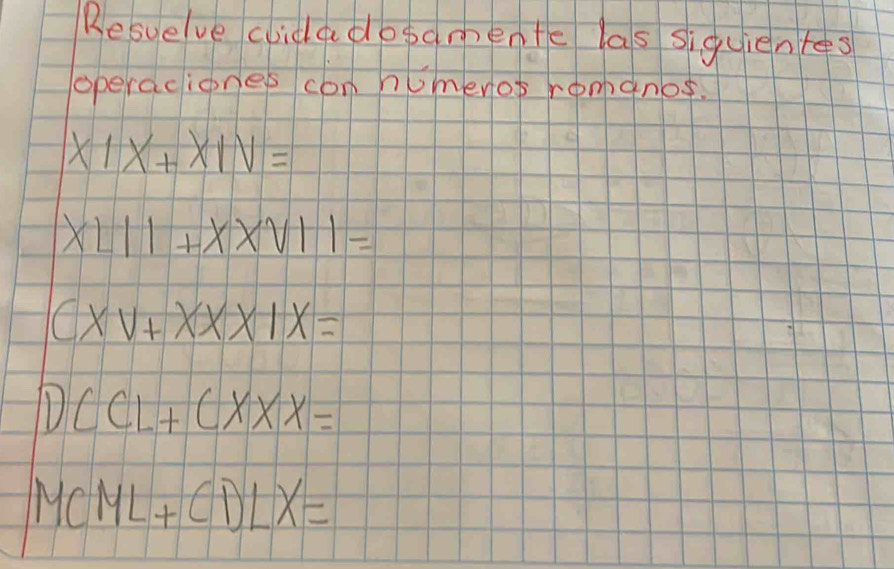 Resuelve cuidadosamente las siguientes
operaciones con números romanos.
XIX+XIV=
XLII+XXVII=
CXV+XXXIX=
DCCL+CXXX=
MCML+CDLX=